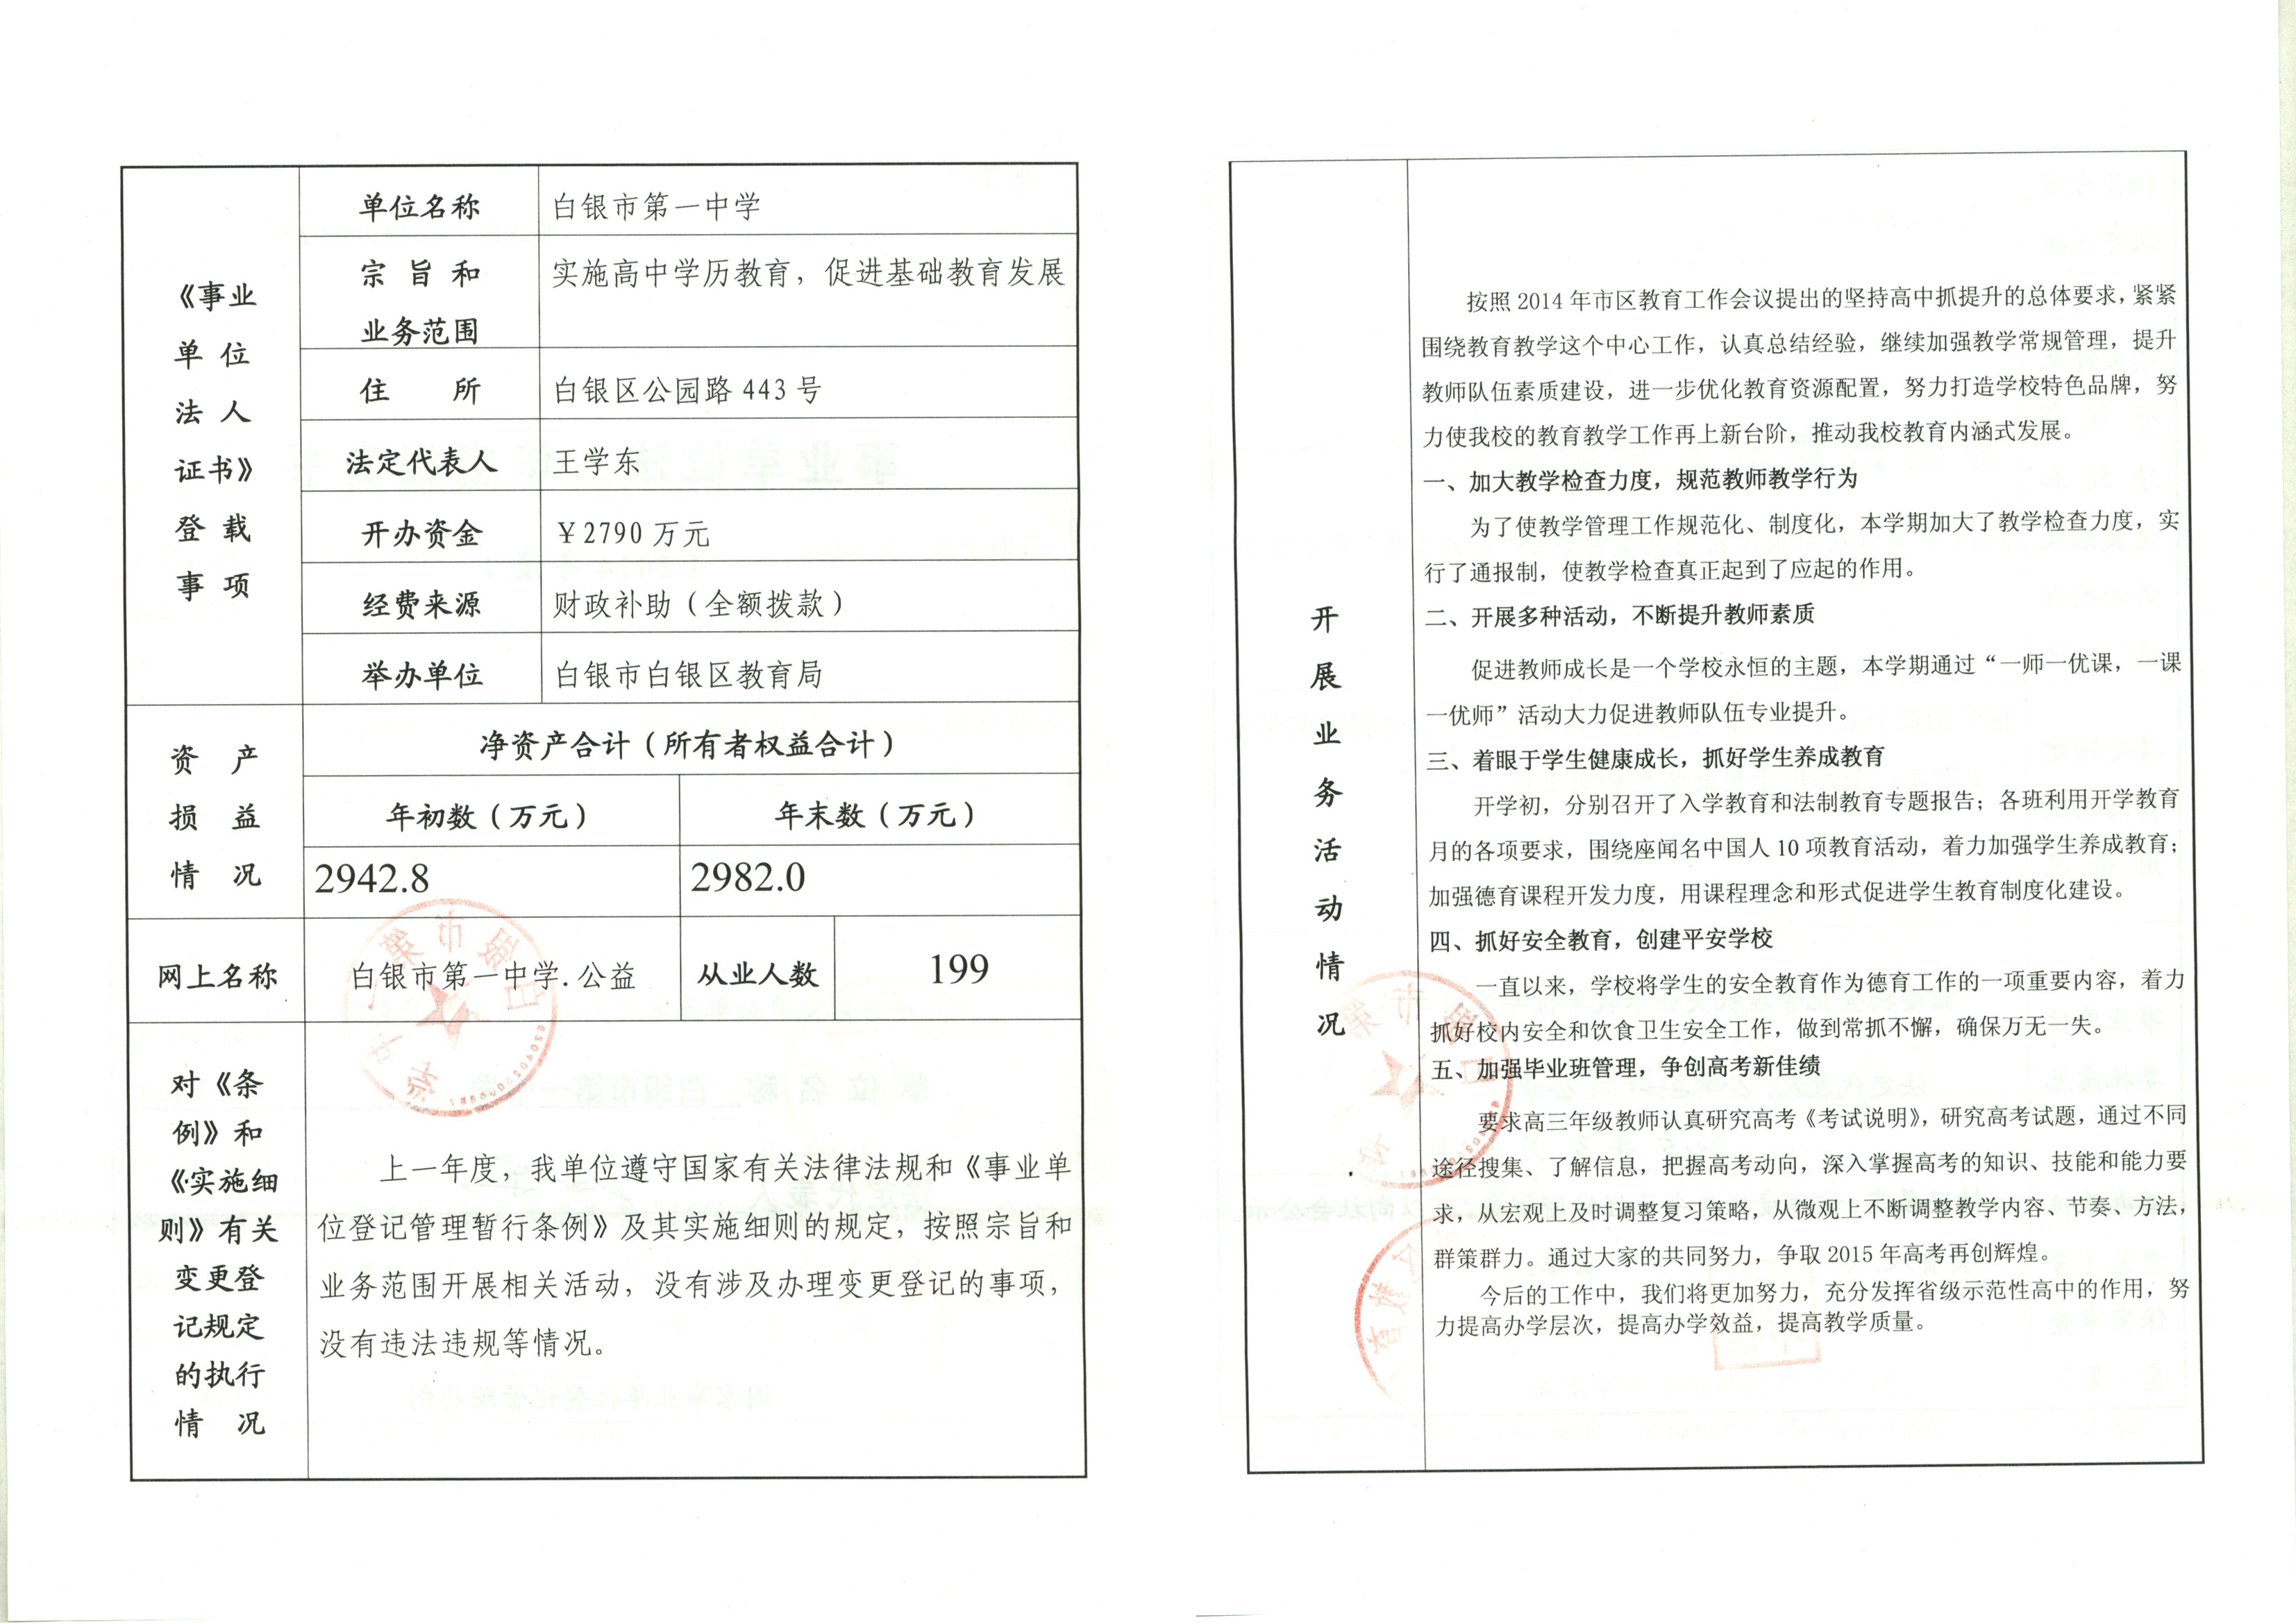 《事业
单 位
法 人
证书》
登 载
事 项
单位名称
白银市第一中学
宗 旨 和
业务范围
实施高中学历教育，促进基础教育发展
住 所
白银区公园路 443 号
法定代表人
王学东
开办资金
￥2790 万元
经费来源
财政补助（全额拨款）
举办单位
白银市白银区教育局
资 产
损 益
情 况
净资产合计（所有者权益合计）
年初数（万元）
年末数（万元）
2942.8
2982.0
网上名称
白银市第一中学.公益
从业人数
199
对《条
例》和
《实施细
则》有关
变更登
记规定
的执行
情 况
上一年度，我单位遵守国家有关法律法规和《事业单
位登记管理暂行条例》及其实施细则的规定，按照宗旨和
业务范围开展相关活动，没有涉及办理变更登记的事项，
没有违法违规等情况。
开
展
业
务
活
动
情
况
按照 2014 年市区教育工作会议提出的坚持高中抓提升的总体要求，紧紧
围绕教育教学这个中心工作，认真总结经验，继续加强教学常规管理，提升
教师队伍素质建设，进一步优化教育资源配置，努力打造学校特色品牌，努
力使我校的教育教学工作再上新台阶，推动我校教育内涵式发展。
一、加大教学检查力度，规范教师教学行为
为了使教学管理工作规范化、制度化，本学期加大了教学检查力度，实
行了通报制，使教学检查真正起到了应起的作用。
二、开展多种活动，不断提升教师素质
促进教师成长是一个学校永恒的主题，本学期通过“一师一优课，一课
一优师”活动大力促进教师队伍专业提升。
三、着眼于学生健康成长，抓好学生养成教育
开学初，分别召开了入学教育和法制教育专题报告；各班利用开学教育
月的各项要求，围绕座闻名中国人 10 项教育活动，着力加强学生养成教育；
加强德育课程开发力度，用课程理念和形式促进学生教育制度化建设。
四、抓好安全教育，创建平安学校
一直以来，学校将学生的安全教育作为德育工作的一项重要内容，着力
抓好校内安全和饮食卫生安全工作，做到常抓不懈，确保万无一失。
五、加强毕业班管理，争创高考新佳绩
要求高三年级教师认真研究高考《考试说明》，研究高考试题，通过不同
途径搜集、了解信息，把握高考动向，深入掌握高考的知识、技能和能力要
求，从宏观上及时调整复习策略，从微观上不断调整教学内容、节奏、方法，
群策群力。通过大家的共同努力，争取 2015 年高考再创辉煌。
今后的工作中，我们将更加努力，充分发挥省级示范性高中的作用，努
力提高办学层次，提高办学效益，提高教学质量。